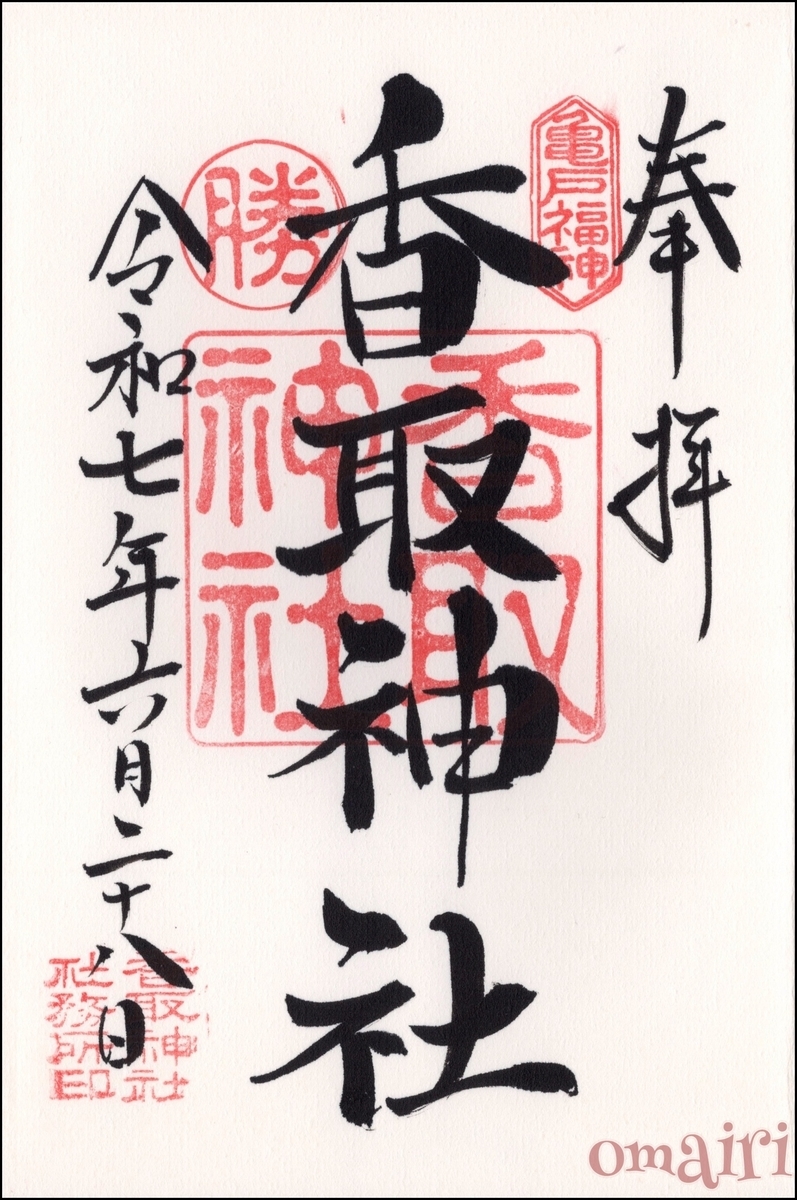 奉拝
亀戸福神
香取神社
香取神社
勝
令和七年六月二十八日
香取神社
社務所印
omairi